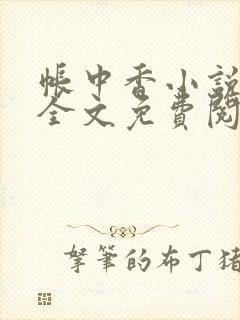 帳中香小説
全文免費閱
拏筆的布丁猪